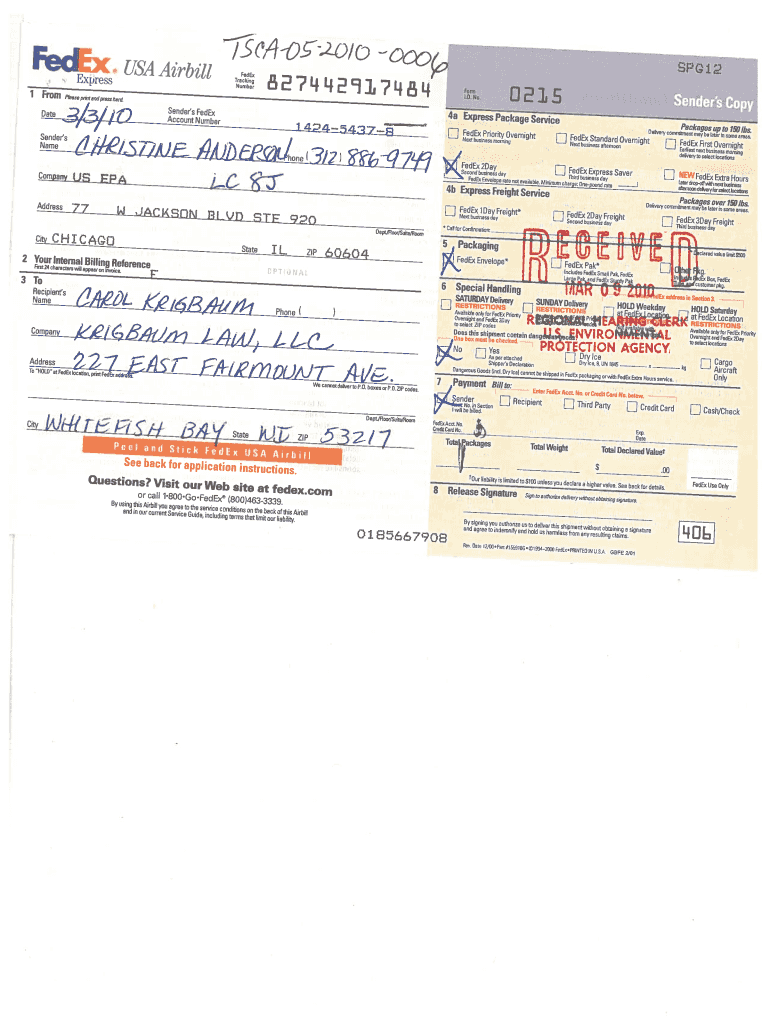 TSCA-05-2010-0006
FedEx. USA Airbill
Express
FedEx Tracking Number 827442917484
1 From Please print and press hard.
Date 3/3/10 Sender's FedEx Account Number 1424-5437-8
Sender's Name CHRISTINE ANDERSON Phone (312) 886-9749
Company US EPA LC 8J
Address 77 W JACKSON BLVD STE 920
Dept./Floor/Suite/Room
City CHICAGO State IL ZIP 60604
2 Your Internal Billing Reference
First 24 characters will appear on invoice.
OPTIONAL
3 To
Recipient's Name CAROL KRIGBAUM Phone ( )
Company KRIGBAUM LAW, LLC
Address 227 EAST FAIRMOUNT AVE.
To "HOLD" at FedEx location, print FedEx address.
We cannot deliver to P.O. boxes or P.O. ZIP codes.
Dept./Floor/Suite/Room
City WHITEFISH BAY State WI ZIP 53217
Peel and Stick FedEx USA Airbill
See back for application instructions.
Questions? Visit our Web site at fedex.com
or call 1-800-Go-FedEx® (800)463-3339.
By using this Airbill you agree to the service conditions on the back of this Airbill
and in our current Service Guide, including terms that limit our liability.
0185667908
SPG12
Form I.D. No. 0215
Sender's Copy
4a Express Package Service
Packages up to 150 lbs.
Delivery commitment may be later in some areas.
FedEx Priority Overnight
Next business morning
FedEx Standard Overnight
Next business afternoon
FedEx First Overnight
Earliest next business morning
delivery to select locations
FedEx 2Day
Second business day
FedEx Express Saver
Third business day
NEW FedEx Extra Hours
Later drop-off with next business
afternoon delivery for select locations
FedEx Envelope rate not available. Minimum charge: One-pound rate
4b Express Freight Service
Packages over 150 lbs.
Delivery commitment may be later in some areas.
FedEx 1Day Freight*
Next business day
FedEx 2Day Freight
Second business day
FedEx 3Day Freight
Third business day
* Call for Confirmation:
5 Packaging
Declared value limit $500
FedEx Envelope*
FedEx Pak*
Includes FedEx Small Pak, FedEx
Large Pak, and FedEx Sturdy Pak
Other Pkg.
RECEIVED
MAR 09 2010
REGIONAL HEARING CLERK
U.S. ENVIRONMENTAL
PROTECTION AGENCY.
6 Special Handling
SATURDAY Delivery
RESTRICTIONS
Available only for FedEx Priority
Overnight and FedEx 2Day
to select ZIP codes
SUNDAY Delivery
RESTRICTIONS
HOLD Weekday
at FedEx Location
HOLD Saturday
at FedEx Location
RESTRICTIONS
Available only for FedEx Priority
Overnight and FedEx 2Day
to select locations
Does this shipment contain dangerous goods?
One box must be checked.
No
Yes
As per attached
Shipper's Declaration
Dry Ice
Dry Ice, 9, UN 1845 x kg
Cargo Aircraft Only
Dangerous Goods (incl. Dry Ice) cannot be shipped in FedEx packaging or with FedEx Extra Hours service.
7 Payment Bill to:
Enter FedEx Acct. No. or Credit Card No. below.
Sender
Acct. No. in Section
1 will be billed.
Recipient
Third Party
Credit Card
Cash/Check
FedEx Acct. No.
Credit Card No.
Exp. Date
Total Packages
Total Weight
Total Declared Value†
$ .00
†Our liability is limited to $100 unless you declare a higher value. See back for details.
FedEx Use Only
8 Release Signature Sign to authorize delivery without obtaining signature.
By signing you authorize us to deliver this shipment without obtaining a signature
and agree to indemnify and hold us harmless from any resulting claims.
406